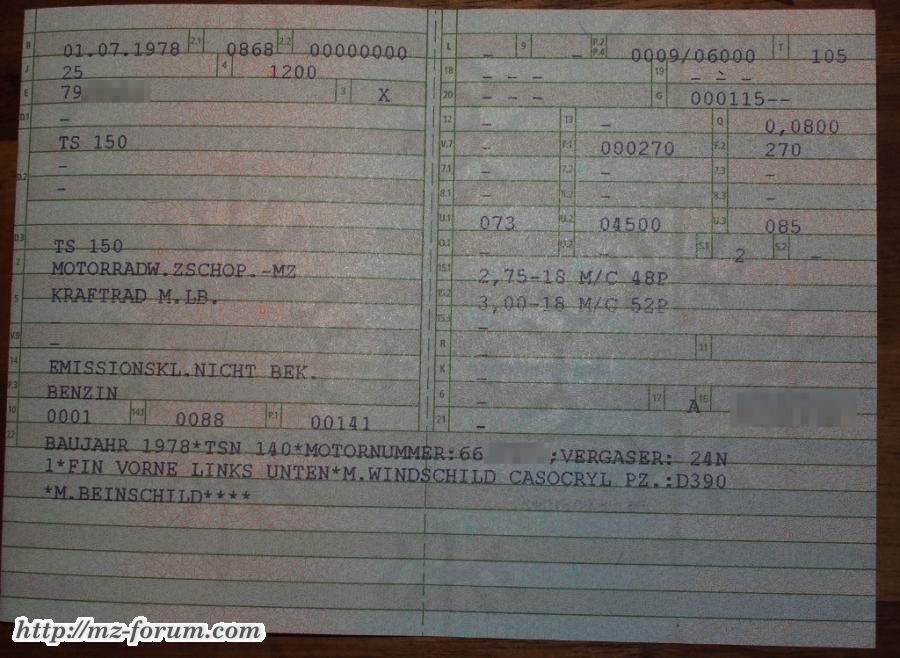 B 01.07.1978 2.1 0868 2.2 00000000
J 25 4 1200
E 79 3 X
D.1 –
TS 150
D.2 –
–
D.3 TS 150
2 MOTORRADW.ZSCHOP.-MZ
5 KRAFTRAD M.LB.
–
V.9 –
14 EMISSIONSKL.NICHT BEK.
P.3 BENZIN
10 0001 14.1 0088 P.1 00141
L – 9 – P.2 P.4 0009/06000 T 105
18 – – – 19 – – –
20 – – – G 000115--
12 – 13 – Q 0,0800
V.7 – F.1 000270 F.2 270
7.1 – 7.2 – 7.3 –
8.1 – 8.2 – 8.3 –
U.1 073 U.2 04500 U.3 085
O.1 – O.2 – S.1 2 S.2 –
15.1 2,75-18 M/C 48P
15.2 3,00-18 M/C 52P
15.3 –
R – 11
K –
6 – 17 A 16
21 –
22 BAUJAHR 1978*TSN 140*MOTORNUMMER:66 ;VERGASER: 24N
1*FIN VORNE LINKS UNTEN*M.WINDSCHILD CASOCRYL PZ.:D390
*M.BEINSCHILD****
http://mz-forum.com